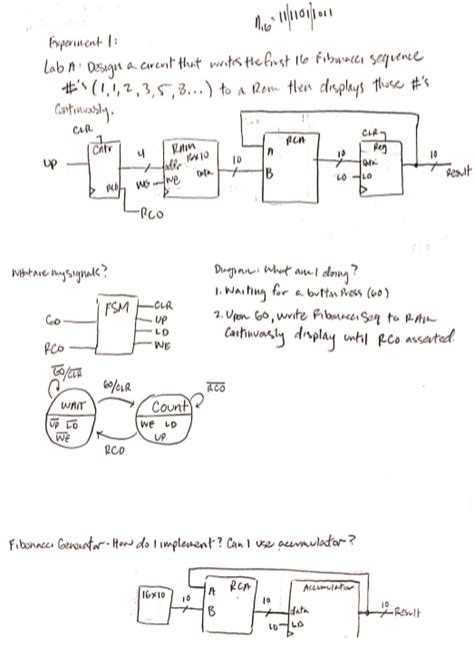 11|1101|1011
Experiment 1:
Lab A: Design a circuit that writes the first 16 Fibonacci sequence
#'s (1,1,2,3,5,8...) to a RAM then displays those #'s
Continuously.
CLR
UP
Cntr
RCO
RCO
4
WE
RAM
16x10
addr
WE
Data
10
RCA
A
B
10
CLR
Reg
data
LD
LD
10
Result
What are my signals?
GO
RCO
FSM
CLR
UP
LD
WE
Diagram: What am I doing?
1. Waiting for a button press (GO)
2. Upon GO, write Fibonacci Seq to RAM
Continuously display until RCO asserted.
GO/CLR
WAIT
UP LD
WE
GO/CLR
RCO
Count
WE LD
UP
RCO
Fibonacci Generator - How do I implement? Can I use accumulator?
16x10
10
RCA
A
B
10
Accumulator
data
LD
LD
10
Result